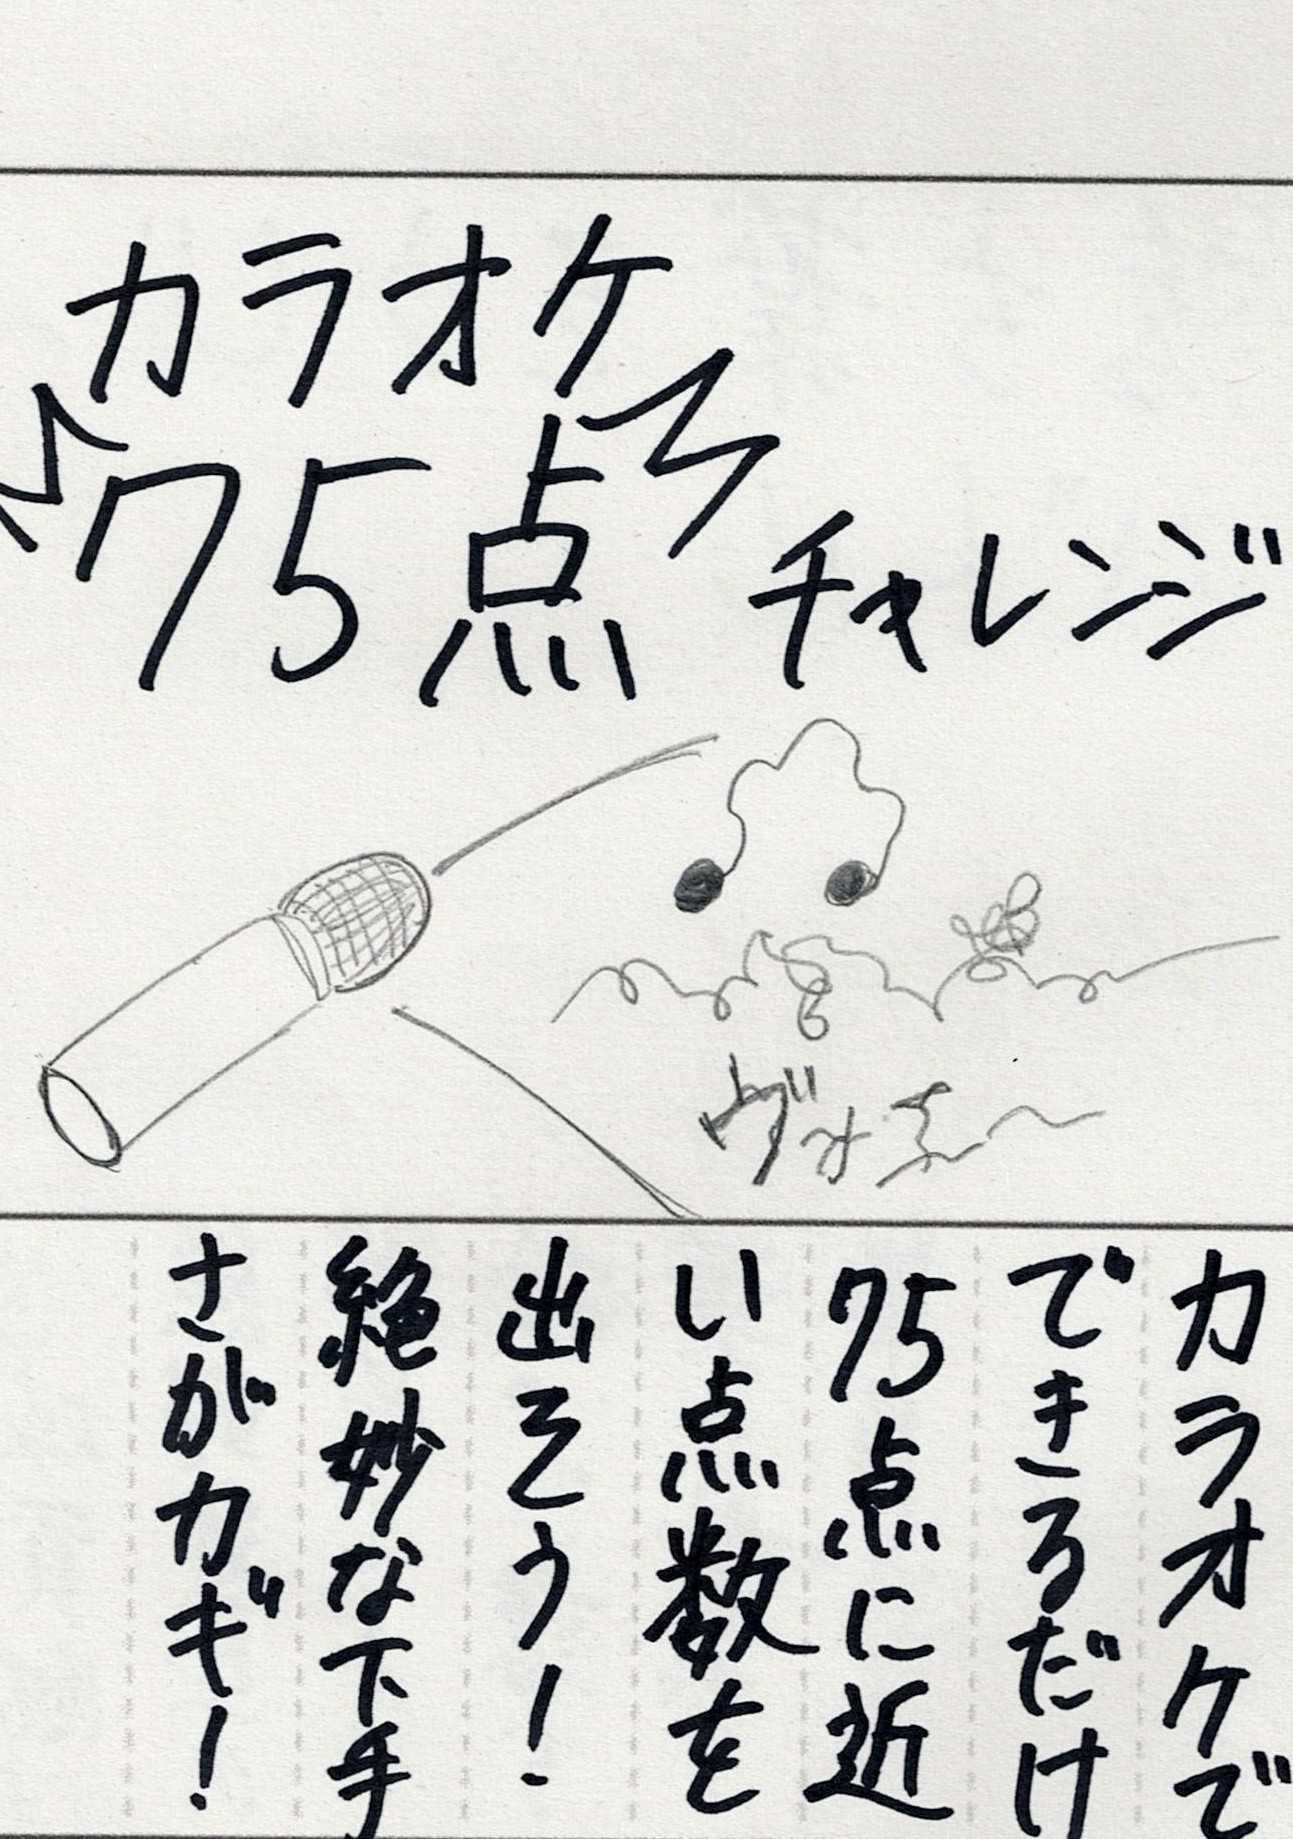 カラオケ
75点チャレンジ
カラオケで
できるだけ
75点に近
い点数を
出そう!
絶妙な下手
さがカギ!